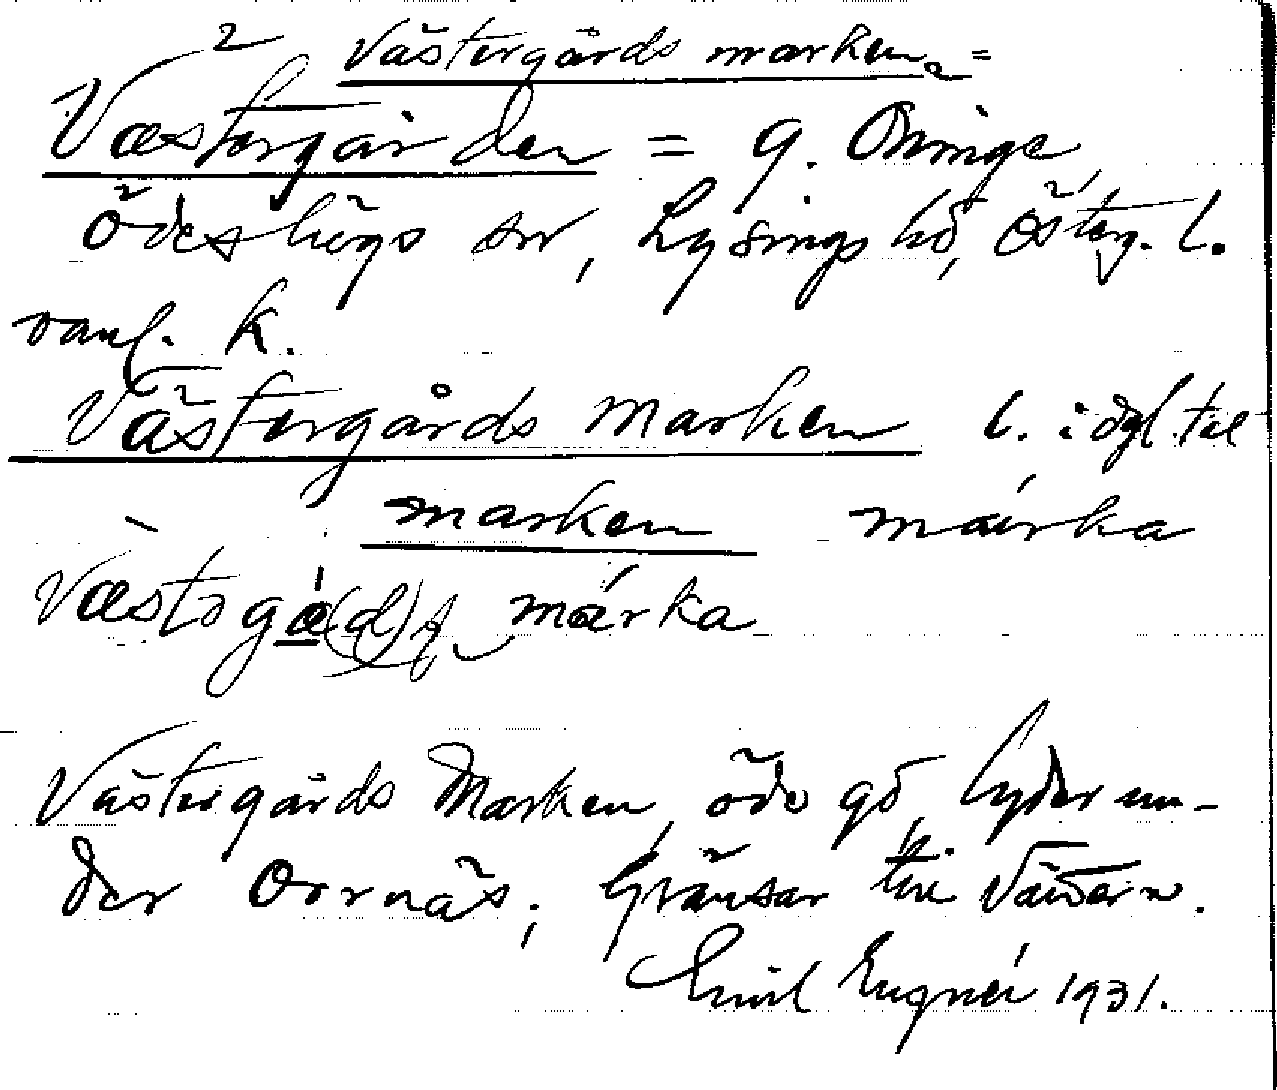 2 Västergårds marken =
Västergården = g. Öninge
Ödeshögs sn, Lysings hd, Österg. l.
vanl. k.
Västergårds marken l. i dgl. tal
marken márka
Væstəgá(d)s márka
Västergårds Marken, öde gd, lyder un-
der Orrnäs; Gränsar till Vättern.
Emil Eugnér 1931.